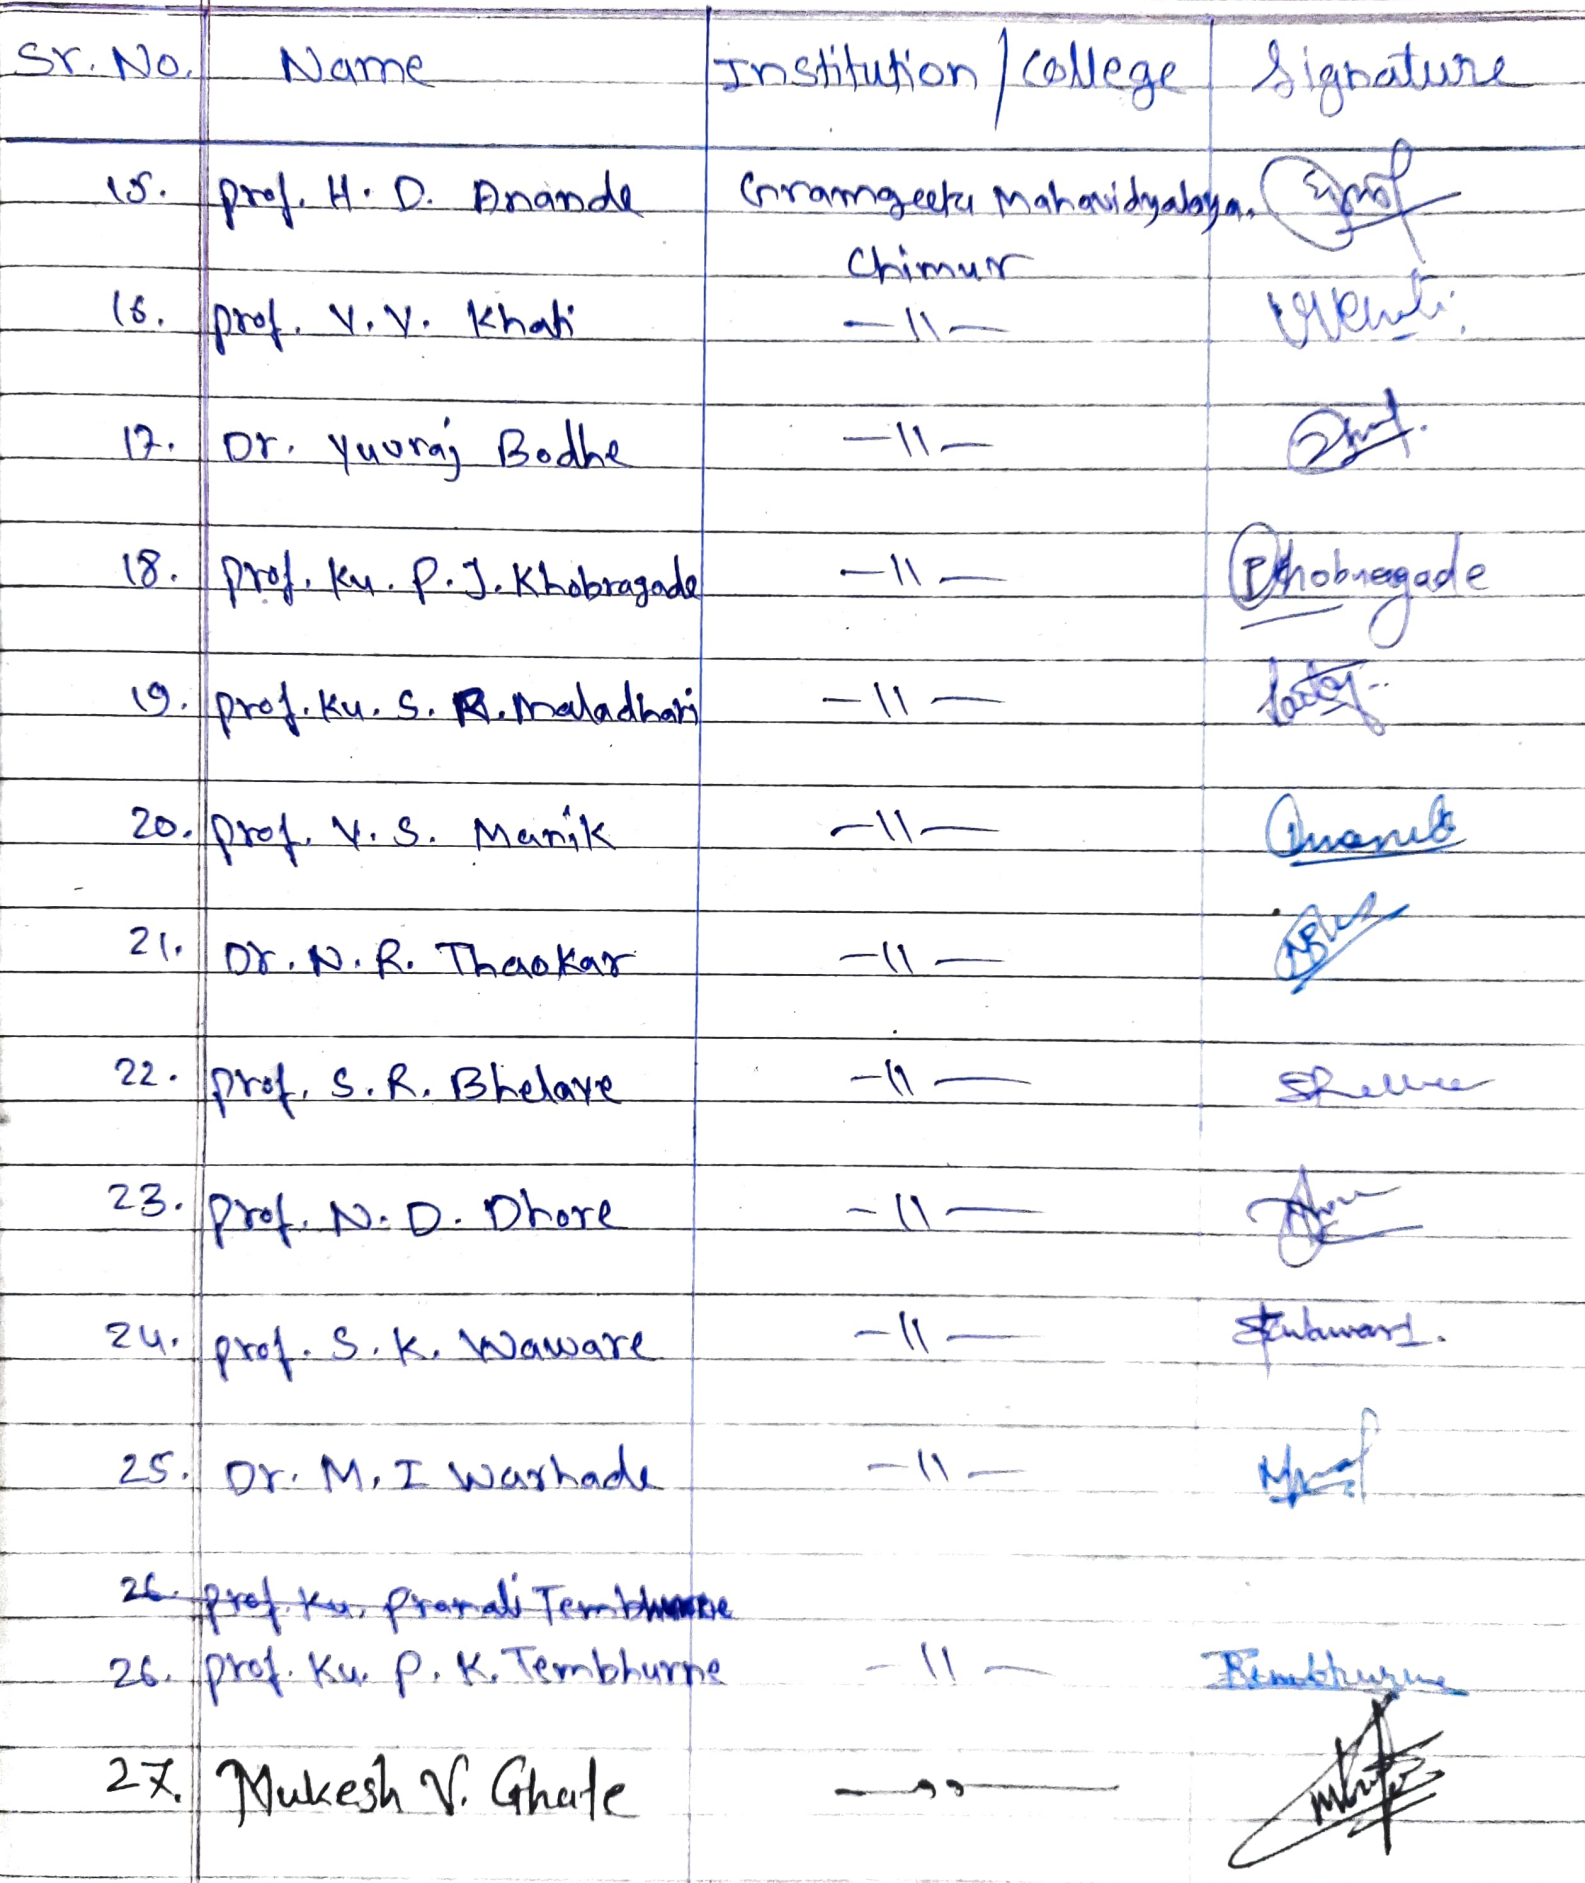 Sr. No. Name Institution / College Signature
15. Prof. H. D. Anande Gramgeeta Mahavidyalaya,
Chimur
16. Prof. V. V. Khati —11—
17. Dr. Yuvraj Bodhe —11—
18. Prof. Ku. P. J. Khobragade —11— PKhobragade
19. Prof. Ku. S. R. Maladhari —11—
20. Prof. V. S. Manik —11— Manik
21. Dr. N. R. Thaokar —11—
22. Prof. S. R. Bhelaye —11—
23. Prof. N. D. Dhore —11—
24. Prof. S. K. Waware —11—
25. Dr. M. I Warhade —11—
26. Prof. Ku. Pranali Tembhurne
26. Prof. Ku. P. K. Tembhurne —11— Tembhurne
27. Mukesh V. Ghate —,,—